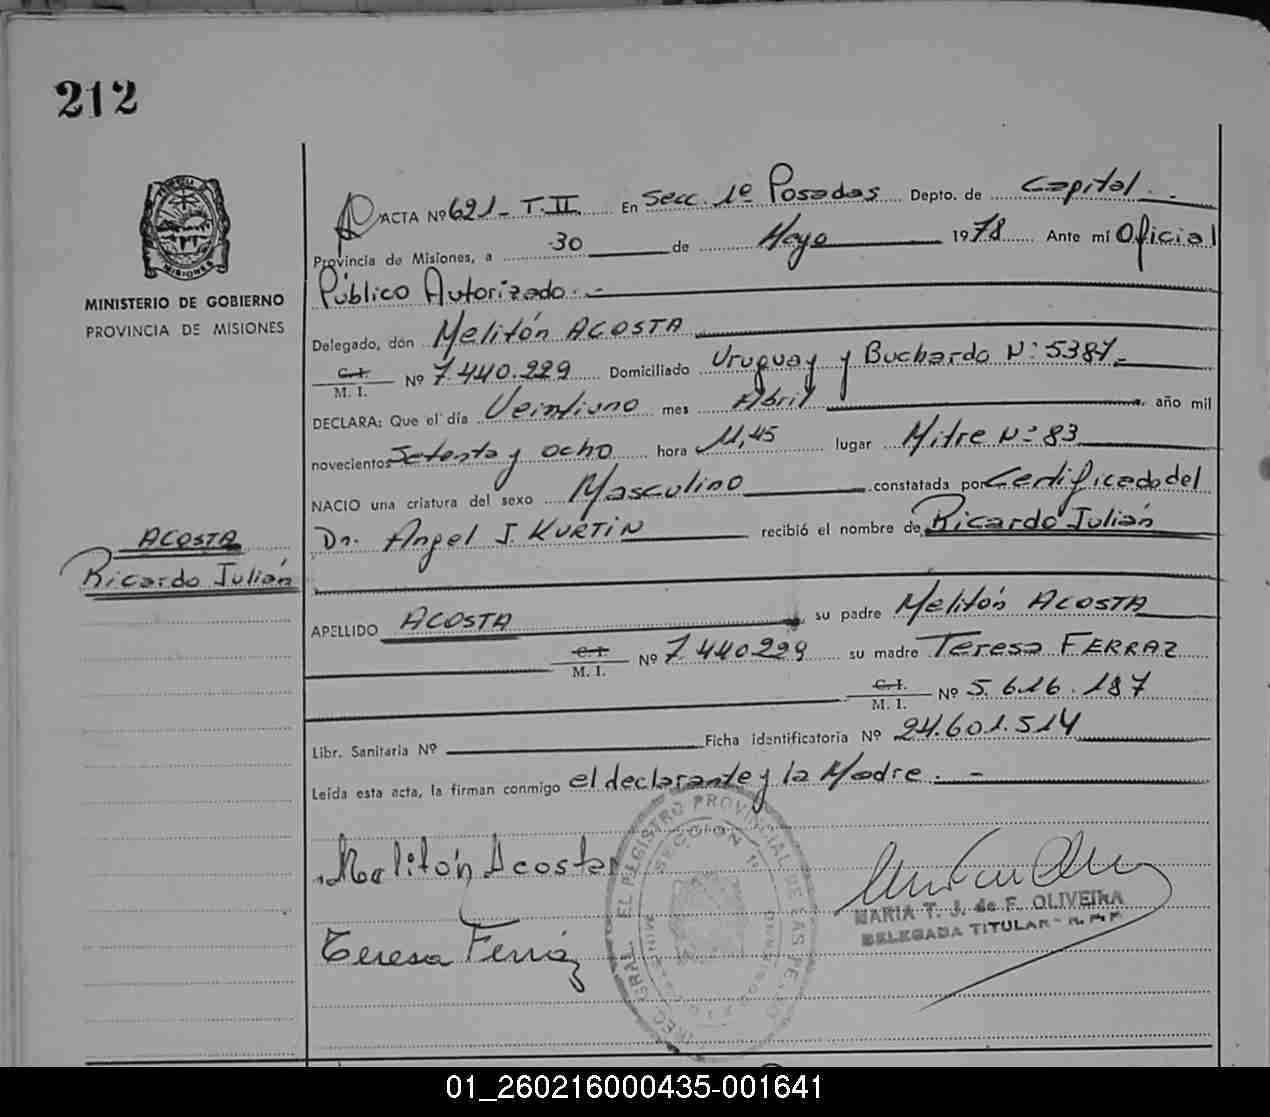 212
ACTA Nº 621 - T. II. En Secc. 1º Posadas Depto. de Capital.-
Provincia de Misiones, a 30 de Mayo 1978 Ante mí Oficial
MINISTERIO DE GOBIERNO
PROVINCIA DE MISIONES
Público Autorizado.-
Delegado, don Melitón ACOSTA
C.I.
M. I. Nº 7.440.229 Domiciliado Uruguay y Buchardo Nº: 5387.-
DECLARA: Que el día Veintiuno mes Abril, año mil
novecientos Setenta y ocho hora 11,45 lugar Mitre Nº: 83
NACIO una criatura del sexo Masculino constatada por Certificado del
Dr. Angel J. KURTIN recibió el nombre de Ricardo Julián
ACOSTA
Ricardo Julián
APELLIDO ACOSTA su padre Melitón ACOSTA
C.I.
M. I. Nº 7.440229 su madre Teresa FERRAZ
C.I.
M. I. Nº 5.616.187
Libr. Sanitaria Nº Ficha identificatoria Nº 24.601.514
Leída esta acta, la firman conmigo el declarante y la Madre.-
Melitón Acosta
Teresa Ferráz
REGISTRO PROVINCIAL DE LAS PERSONAS
SECCION 1º
MARIA T. J. de F. OLIVEIRA
DELEGADA TITULAR - R.P.P.
01_260216000435-001641